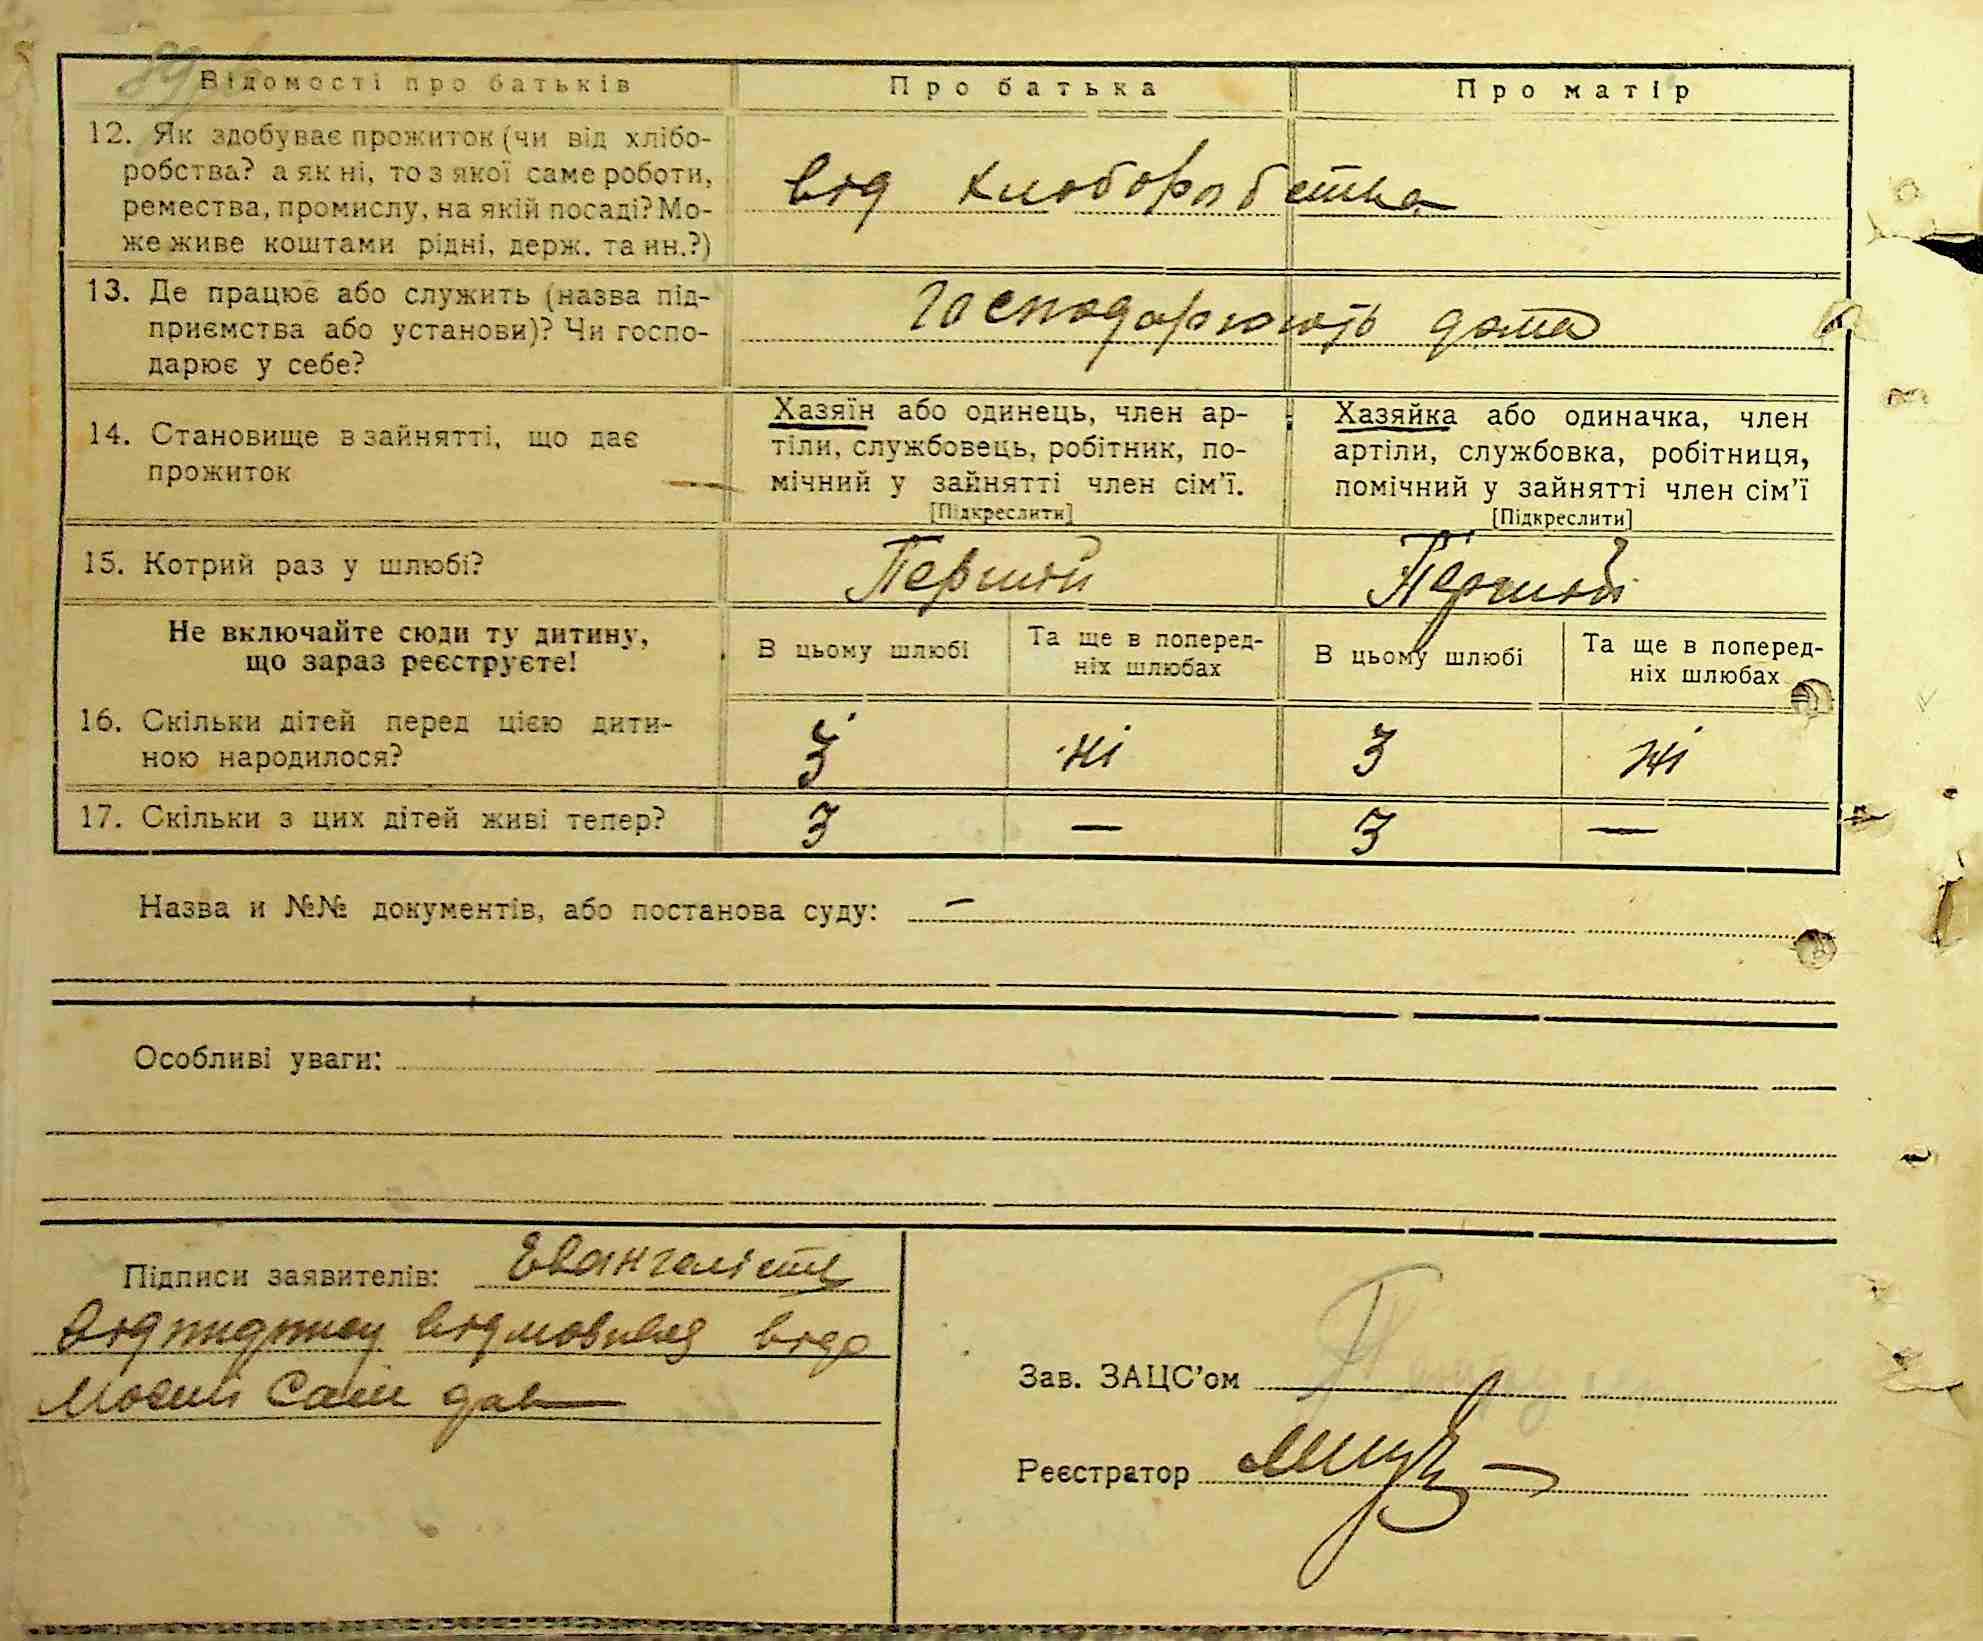 Відомості про батьків
Про батька
Про матір
12. Як здобуває прожиток (чи від хлібо-
робства? а як ні, то з якої саме роботи,
ремества, промислу, на якій посаді? Мо-
же живе коштами рідні, держ. та ин.?)
від хліборобства
13. Де працює або служить (назва під-
приємства або установи)? Чи госпо-
дарює у себе?
Господарюють дома
14. Становище в зайнятті, що дає
прожиток
Хазяїн або одинець, член ар-
тіли, службовець, робітник, по-
мічний у зайнятті член сім'ї.
[Підкреслити]
Хазяйка або одиначка, член
артіли, службовка, робітниця,
помічний у зайнятті член сім'ї
[Підкреслити]
15. Котрий раз у шлюбі?
Перший
Перший
Не включайте сюди ту дитину,
що зараз реєструєте!
В цьому шлюбі
Та ще в поперед-
ніх шлюбах
В цьому шлюбі
Та ще в поперед-
ніх шлюбах
16. Скільки дітей перед цією дити-
ною народилося?
3 ні 3 ні
17. Скільки з цих дітей живі тепер?
3 — 3 —
Назва и №№ документів, або постанова суду: —
Особливі уваги:
Підписи заявителів: Евангелісти
Зав. ЗАЦС'ом
Реєстратор